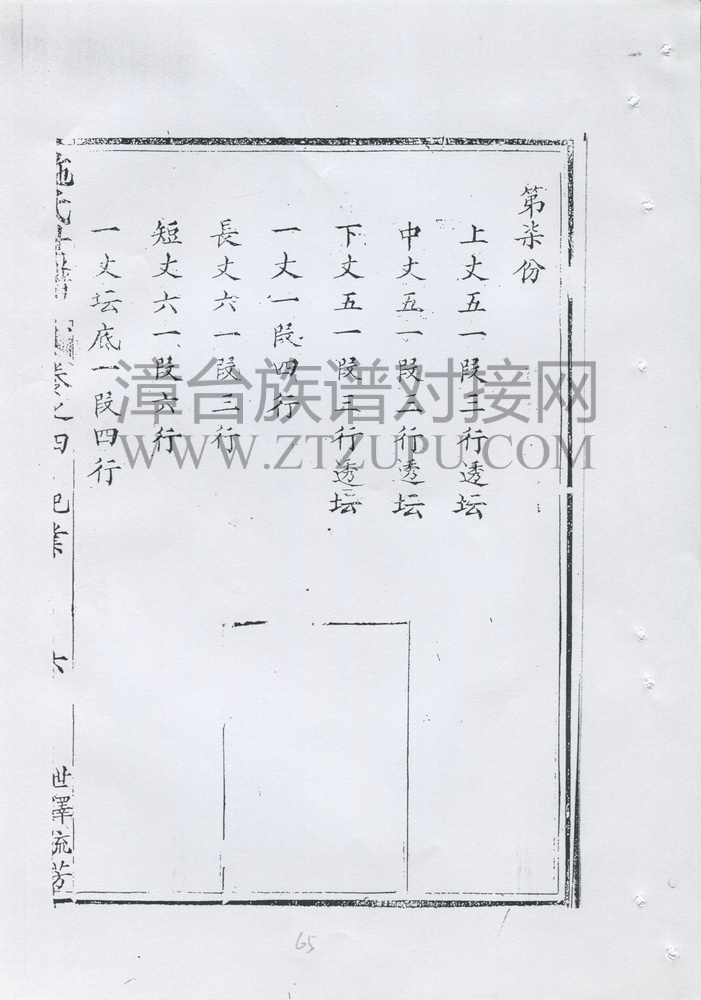 第柒份
上丈五一段三行透坛
中丈五一段二行透坛
下丈五一段三行透坛
一丈一段四行
長丈六一段三行
短丈六一段六行
一丈坛底一段四行
卷之四 祀業 六 世澤流芳
漳台族谱对接网
WWW.ZTZUPU.COM
65